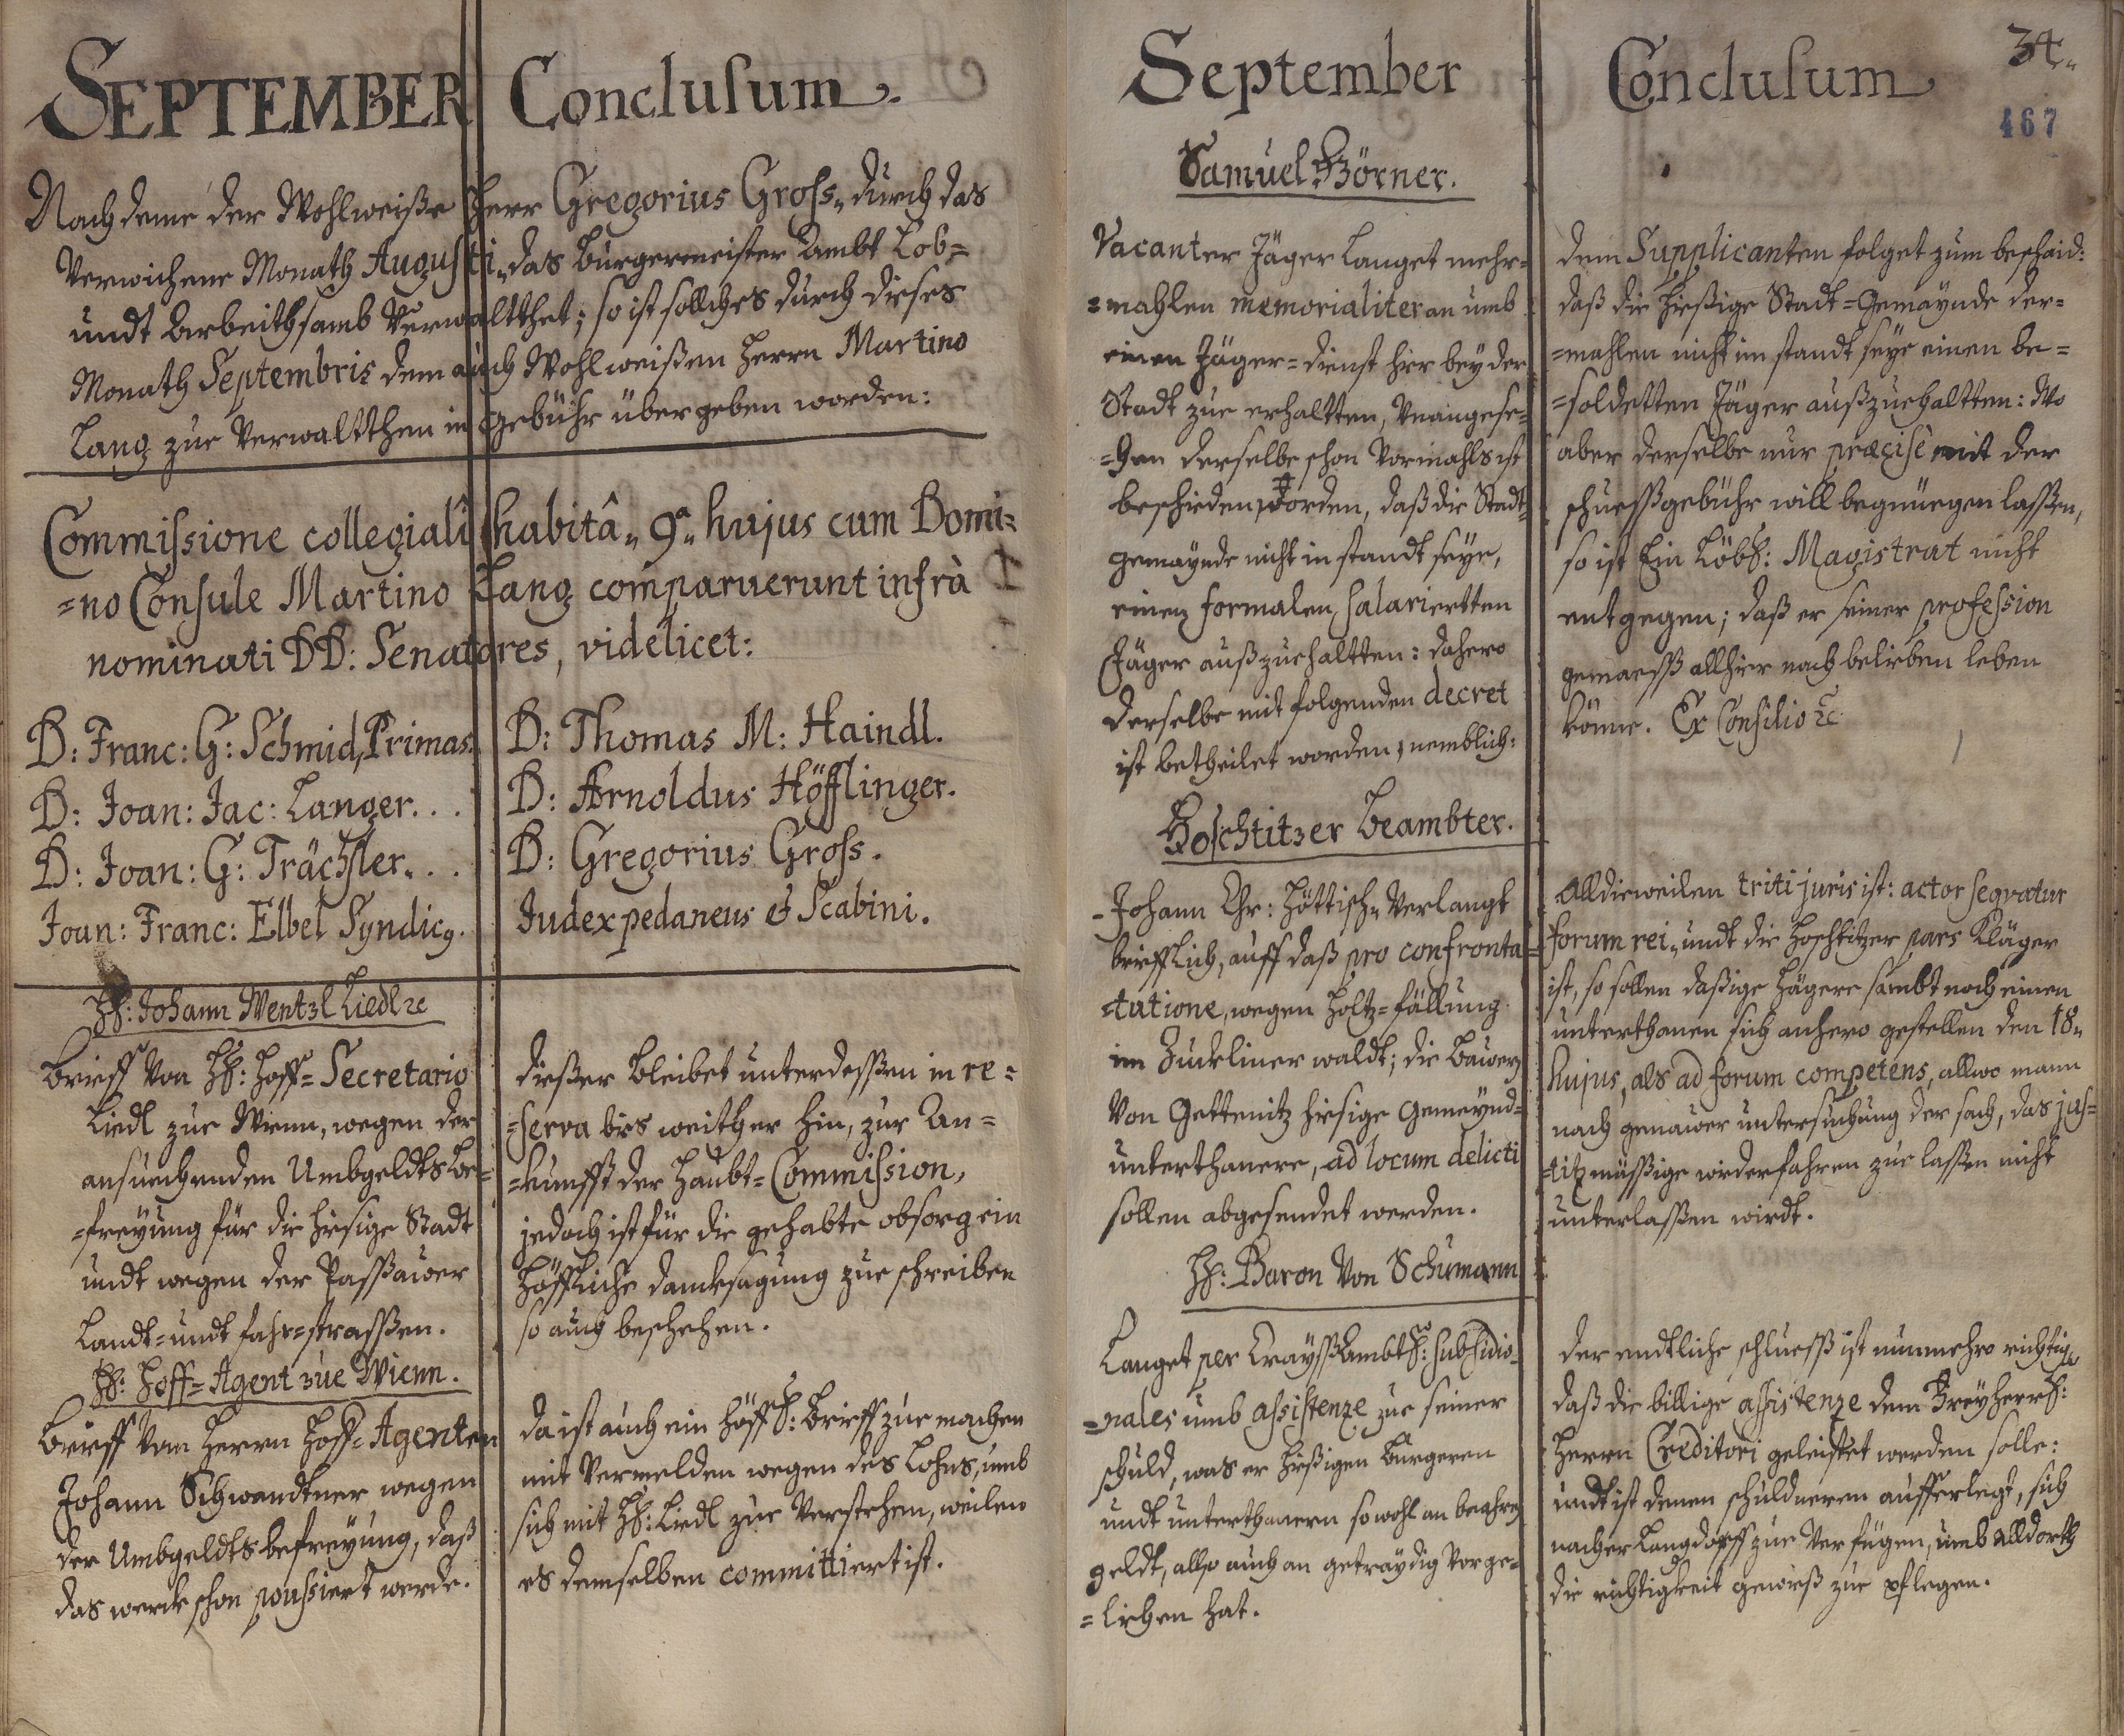 SEPTEMBER
Conclusum.
Nach deme der Wohlweiße Herr Gregorius Gross„ durch das
Verwichene Monath Augusti„ das Burgermeister Ambt Lob=
undt Arbeithsamb Verwaltthet; so ist sollches durch dieses
Monath Septembris dem auch Wohlweißen Herrn Martino
Lang zue Verwaltthen in gebühr übergeben worden:
Commissione collegiali habitâ„ 9ª„ hujus cum Domi=
=no Consule Martino Lang comparuerunt infrà
nominati DD: Senatores, videlicet:
D: Franc: G: Schmid, Primas.
D: Joan: Jac: Langer...
D: Joan: G: Trächsler...
Joan: Franc: Elbel Syndicg.
D: Thomas M: Haindl.
D: Arnoldus Höfflinger.
D: Gregorius Gross.
Judex pedaneus & Scabini.
HE: Johann Wentzl Liedl ꝛc
Brieff Von HE: Hoff=Secretario
Liedl zue Wienn, wegen der
ansuechenden Umbgeldts Be=
=freyung für die hiesige Stadt
undt wegen der Passauer
Landt= undt fahr=strassen.
dießer bleibet unterdeßen in re=
=serva bies weither hin, zur An=
=kunfft der Haubt=Commission,
jedoch ist für die gehabte obsorg ein
höffliche dancksagung zue schreiben
so auch beschehen.
HE: Hoff=Agent zue Wienn.
Brieff Von Herrn Hoff=Agenten
Johann Schwandtner wegen
der Umbgeldts befreyung, daß
das werck schon poussiert werde.
da ist auch ein höffl: Brieff zue machen
mit Vermelden wegen des Lohns, umb
sich mit HE: Liedl zue Verstehen, weilen
es demselben committiert ist.
September
Conclusum
34„
467
Samuel Börner.
Vacanter Jäger Langet mehr=
=mahlen memorialiter an umb
einen Jäger=dienst hier bey der
Stadt zue erhaltten, Unangese=
=hen derselbe schon Vormahls ist
beschieden worden, daß die Stadt=
gemaynde nicht in standt seye,
einen formalen salariertten
Jäger außzuehaltten: dahero
derselbe mit folgenden decret
ist betheilet worden, nemblich:
dem Supplicanten folget zum beschaid:
daß die hießige Stadt=Gemaynde der=
=mahlen nicht im standt seye einen be=
=soldetten Jäger außzuehaltten: Wo
aber derselbe nur præcisè mit der
schuessgebühr will begnuegen lassen,
so ist Ein Löbl: Magistrat nicht
entgegen; daß er seiner profession
gemaess allhier nach belieben leben
könne. Ex Consilio ꝛc
Hoschtitzer Beambter.
Johann Chr: Höttisch„ Verlangt
brieflich, auff daß pro confronta=
=tatione, wegen Holtz=fällung
im Zuckliner waldt; die Bauern
Von Gettenitz hiesige Gemeynd=
unterthanere, ad locum delicti
sollen abgesendet werden.
Alldieweilen triti juris ist: actor seqvatur
forum rei„ undt die Hoschtitzer pars Kläger
ist, so sollen daßige Hägere sambt noch einen
unterthanen sich anhero gestellen den 18„
hujus, als ad forum competens, allwo mann
nach genauer untersuchung der sach, das jus=
titzmässige wiederfahren zue lassen nicht
unterlassen wirdt.
HE: Baron Von Schumann
Langet per CrayssAmbtl: subsidio=
=nales umb assistenze zue seiner
schuld, was er hießigen Burgeren
undt unterthanern so wohl an baahren
geldt, allß auch an getraydig Vorge=
=liehen hat.
der endtliche schluess ist nunmehro richtig„
daß die billige assistenze dem Freyherrl:
Herrn Creditori geleistet werden solle:
undt ist denen schuldneren aufferlegt, sich
nacher Langdorff zue Verfügen, umb alldorth
die richtigkeit gewieß zue pflegen.